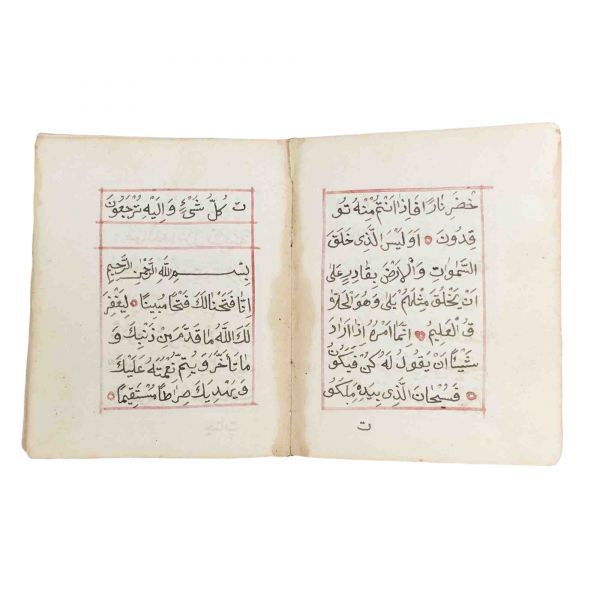 خْضَرِ نَارًا فَاِذَا اَنْتُمْ مِنْهُ تُو
قِدُونَ اَوَلَيْسَ الَّذِى خَلَقَ
السَّمٰوَاتِ وَالْاَرْضَ بِقَادِرٍ عَلٰى
اَنْ يَخْلُقَ مِثْلَهُمْ بَلٰى وَهُوَ الْخَلَّا
قُ الْعَلِيمُ اِنَّمَا اَمْرُهُ اِذَا اَرَادَ
شَيْئًا اَنْ يَقُولَ لَهُ كُنْ فَيَكُونُ
فَسُبْحَانَ الَّذِى بِيَدِهِ مَلَكُو
ت
تُ كُلِّ شَىْءٍ وَاِلَيْهِ تُرْجَعُونَ
بِسْمِ اللّٰهِ الرَّحْمٰنِ الرَّحِيمِ
اِنَّا فَتَحْنَا لَكَ فَتْحًا مُبِينًا لِيَغْفِرَ
لَكَ اللّٰهُ مَا تَقَدَّمَ مِنْ ذَنْبِكَ وَ
مَا تَاَخَّرَ وَيُتِمَّ نِعْمَتَهُ عَلَيْكَ
وَيَهْدِيَكَ صِرَاطًا مُسْتَقِيمًا